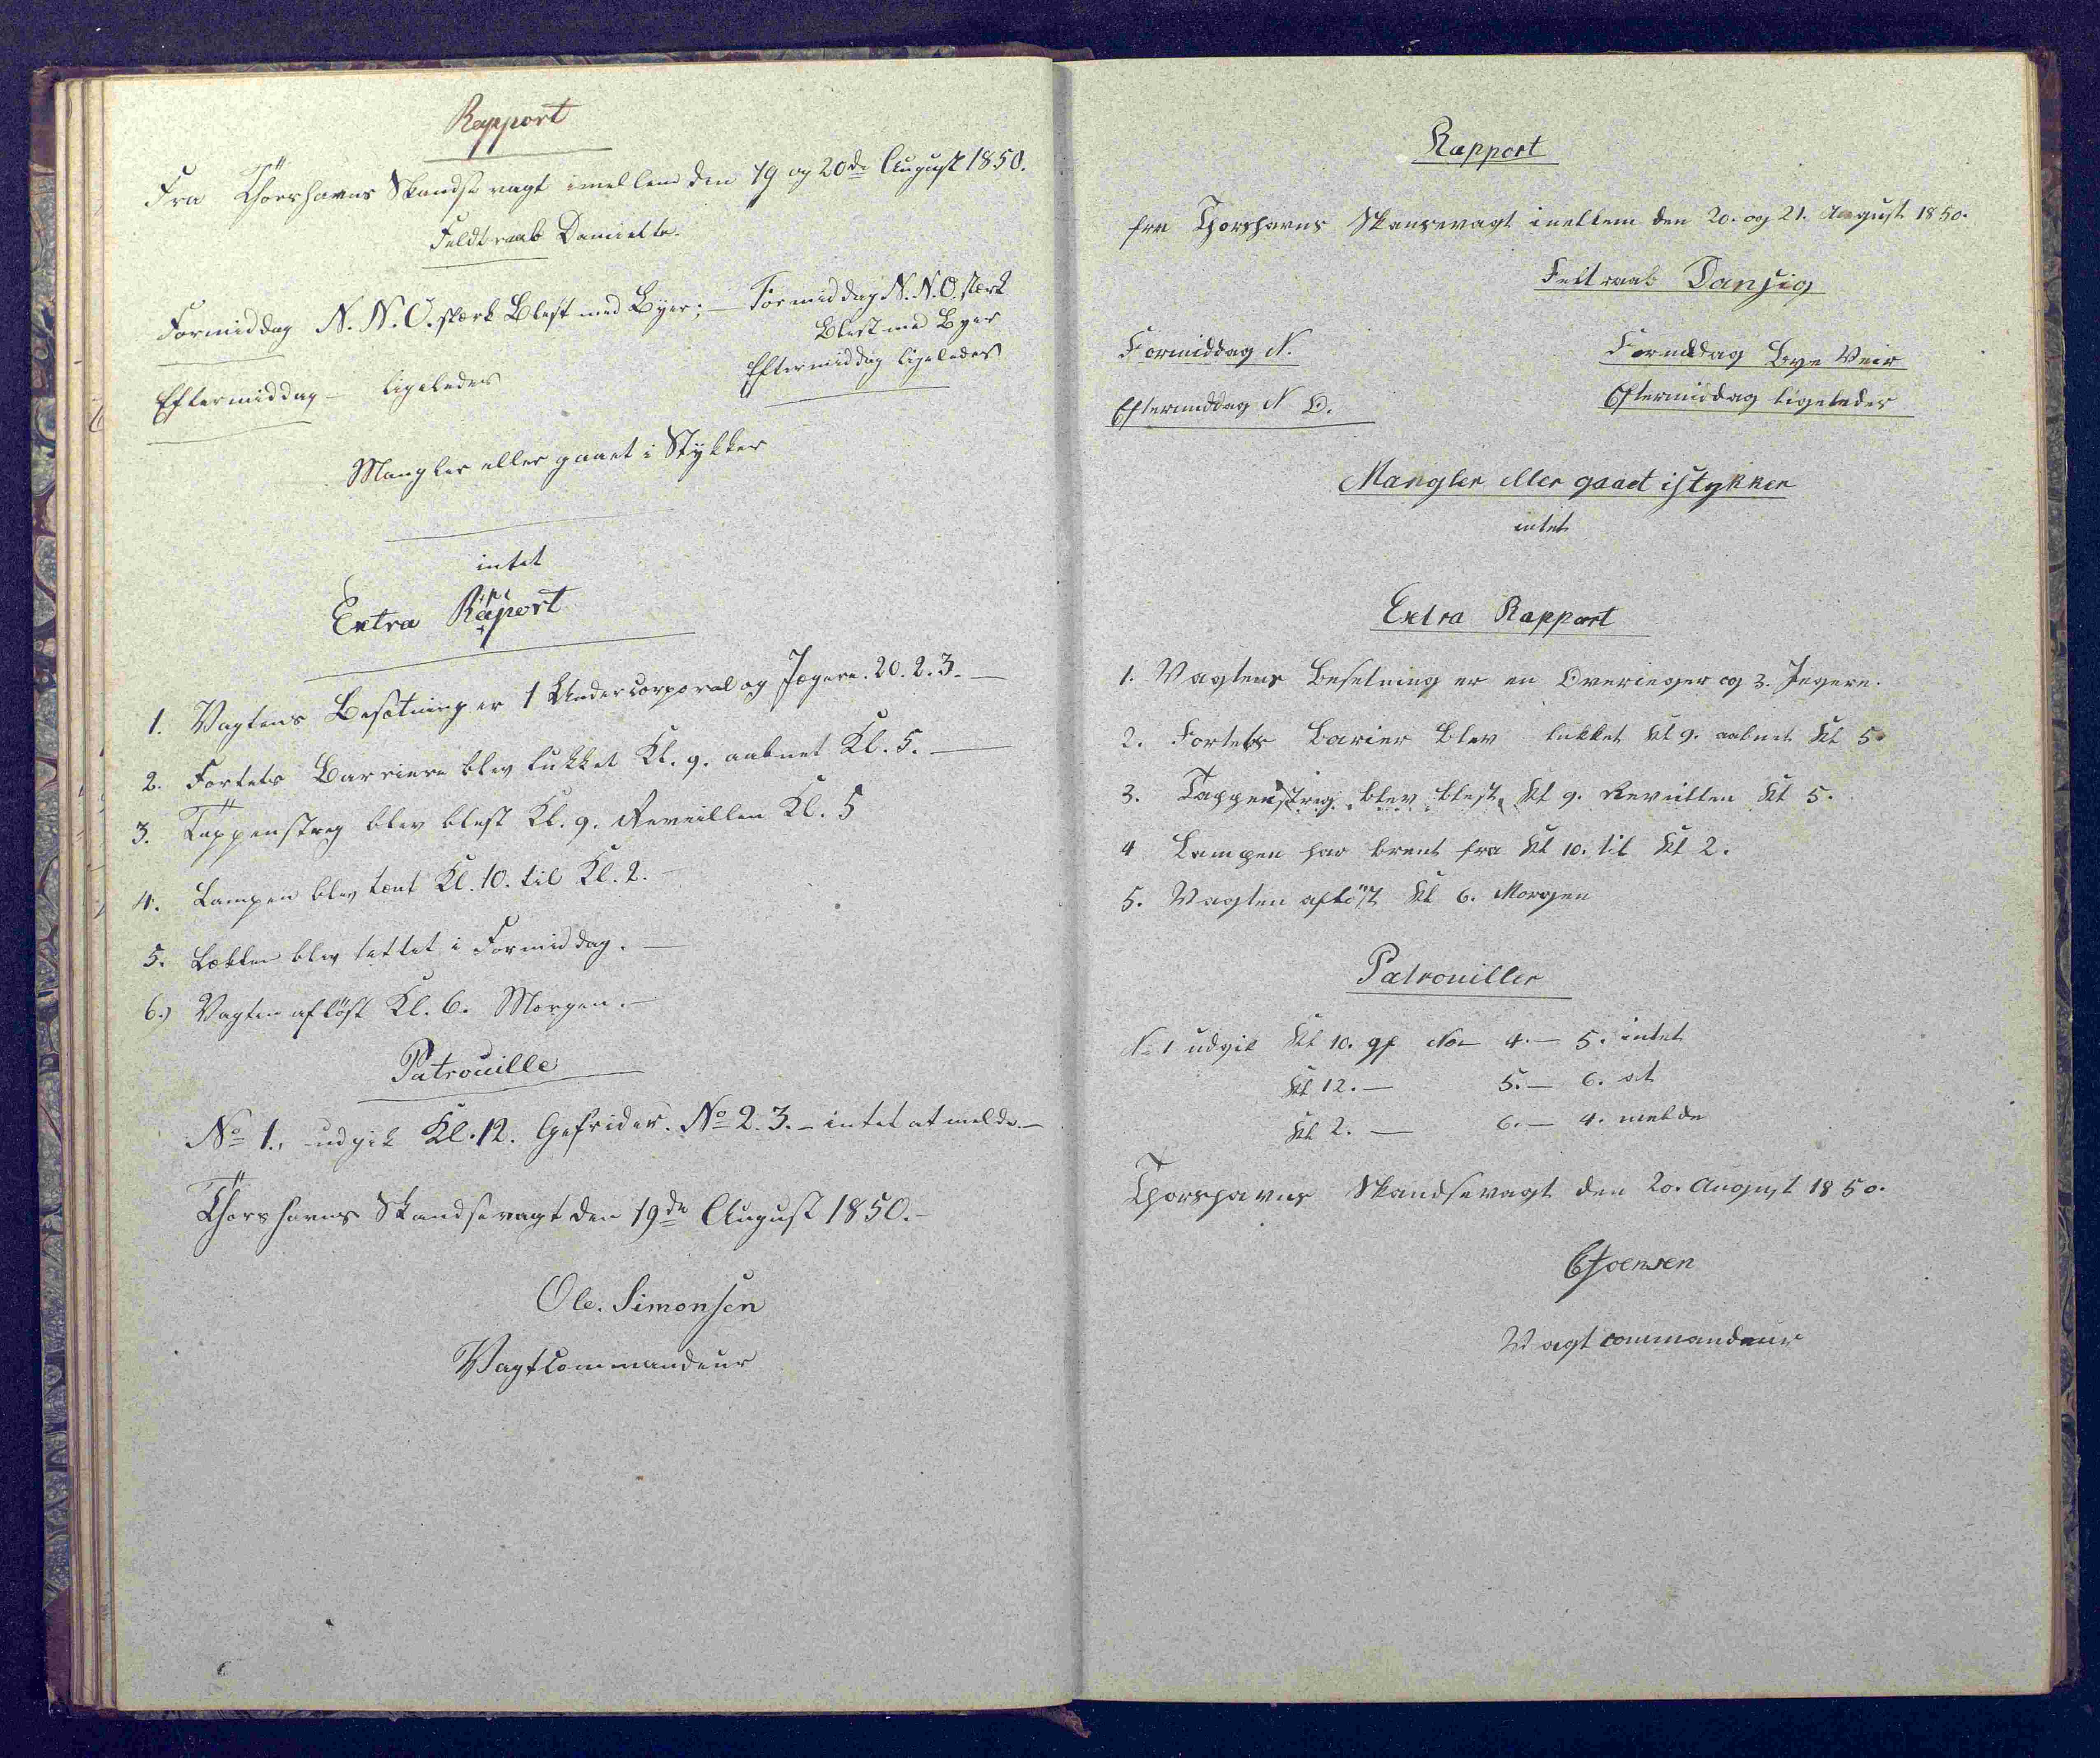 Rapport
Fra Thorshavns Skandsevagt imellem den 19 og 20de August 1850.
Feldtraab Damiette.
Formiddag N. N. O. stærk Blest med Byer; — Formiddag N. N. O. stærk
Blest med Byer
Eftermiddag — ligeledes
Eftermiddag ligeledes
Mangler eller gaaet i Stykker
intet
Extra Raport
1. Vagtens Besætning er 1 Undercorporal og Jægere. 20. 2. 3. —
2. Fortets Barriere blev lukket Kl. 9. aabnet Kl. 5. —
3. Tappenstreg blev blest Kl. 9. Reveillen Kl. 5
4. Lampen blev tent Kl. 10. til Kl. 2. —
5. blev i Formiddag. —
6.) Vagten afløst Kl. 6. Morgen. —
Patrouille
No 1., udgik Kl. 12. Gefrider. No 2. 3. — intet at melde. —
Thorshavns Skandsevagt den 19de August 1850. —
Ole. Simonsen
Vagtcommandeur
Rapport
fra Thorshavns Skansevagt inellem den 20. og 21. August 1850.
Feltraab Danzig
Formiddag N.
Formddag Bye Veir
Eftermiddag N O.
Eftermiddag ligeledes
Mangler eller gaaet istykker
intet
Extra Rapport
1. Vagtens Besetning er en Overieger og 3. Jegere.
2. Fortets Barier blev lukket Kl 9. aabnet Kl 5.
3. Tappenstreg blev blest Kl 9. Reveillen Kl 5.
4 Lampen har brent fra Kl 10. til Kl 2.
5. Vagten afløst Kl 6. Morgen
Patrouiller
No 1 udgik Kl 10. gf No 4. — 5. intet
Kl 12. — 5. — 6. at
Kl 2. — 6. — 4. melde
Thorshavns Skandsevagt den 20. August 1850.
Joensen
Vagtcommandeur